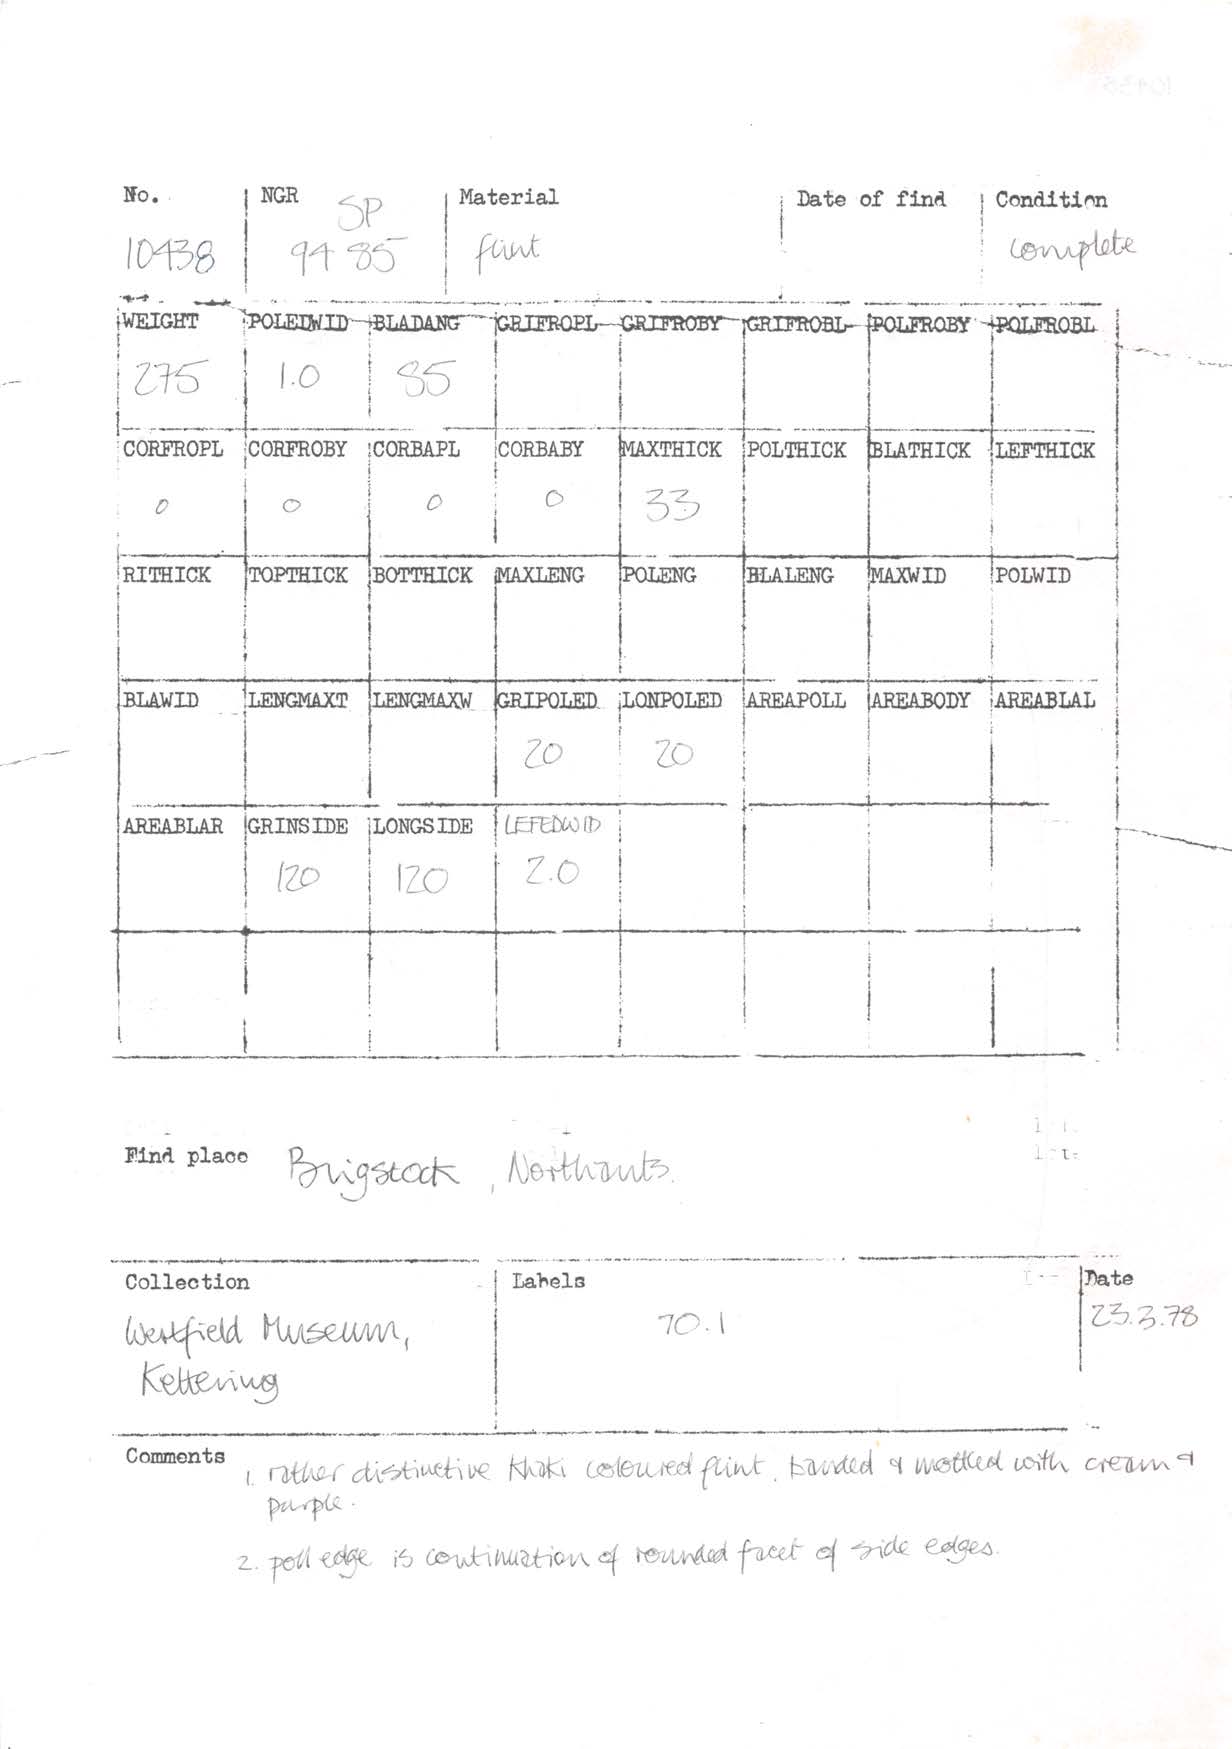 No. NGR Material Date of find Condition
SP
10438 94 85 flint complete
WEIGHT POLEDWID BLADANG GRIFROPL GRIFROBY GRIFROBL POLFROBY POLFROBL
275 1.0 85
CORFROPL CORFROBY CORBAPL CORBABY MAXTHICK POLTHICK BLATHICK LEFTHICK
0 0 0 0 33
RITHICK TOPTHICK BOTTHICK MAXLENG POLENG BLALENG MAXWID POLWID
BLAWID LENGMAXT LENGMAXW GRIPOLED LONPOLED AREAPOLL AREABODY AREABLAL
20 20
AREABLAR GRINSIDE LONGSIDE LEFEDWID
120 120 2.0
Find place Brigstock, Northants.
Collection Labels Date
Westfield Museum, 70.1 23.3.78
Kettering
Comments 1. rather distinctive khaki coloured flint, banded & mottled with cream &
purple.
2. poll edge is continuation of rounded facet of side edges.